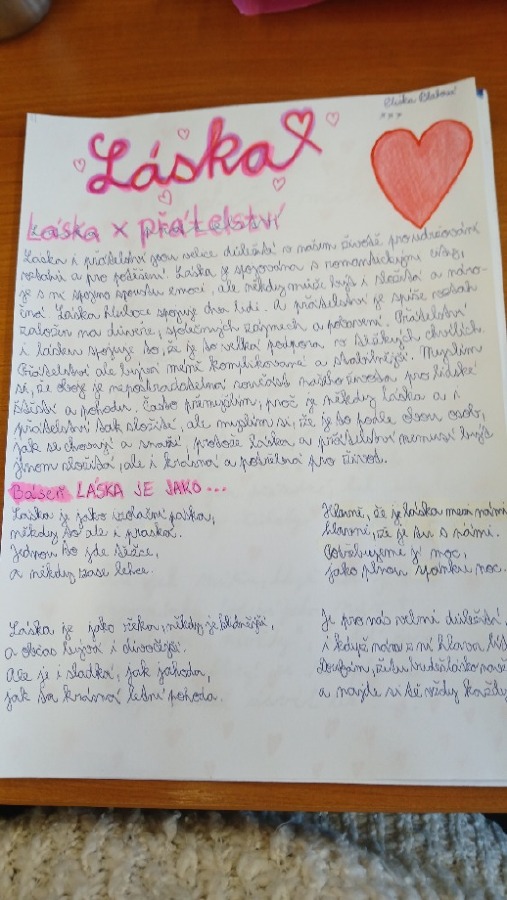 Eliška
Láska
Láska x přátelství
Láska i přátelství jsou velice důležité v našem životě pro udržování
vztahů a pro potěšení. Láska je spojována s romantickými
je s ní spojeno spoustu emocí, ale někdy může být i složitá a náro-
čná. Láska hluboce spojuje dva lidi. A přátelství je spíše vztah
založen na důvěře, společných zájmech a pobavení. Přátelství
i lásku spojuje to, že je to velká podpora v těžkých chvílích.
Přátelství ale bývá méně komplikované a stabilnější. Myslím
si, že oboje je nepostradatelná součást našeho života pro lidské
štěstí a pohodu. Často přemýšlím, proč je někdy láska a i
přátelství tak složité, ale myslím si, že je to podle obou osob,
jak se chovají a snaží, protože láska a přátelství nemusí být
jenom složitá, ale i krásná a potřebná pro život.
Báseň LÁSKA JE JAKO...
Láska je jako izolační páska,
někdy to ale i praská.
Jednou to jde těžce,
a někdy zase lehce.
Láska je jako řeka, někdy je klidnější,
a občas bývá i divočejší.
Ale je i sladká, jak jahoda,
jak ta krásná letní pohoda.
Hlavně, že je láska mezi námi
hlavně, že je tu s námi.
Potřebujeme jí moc,
jako plnou spánku noc.
Je pro nás velmi důležitá
i když nás z ní hlava
Doufám, že
a najde si tě vždy každý